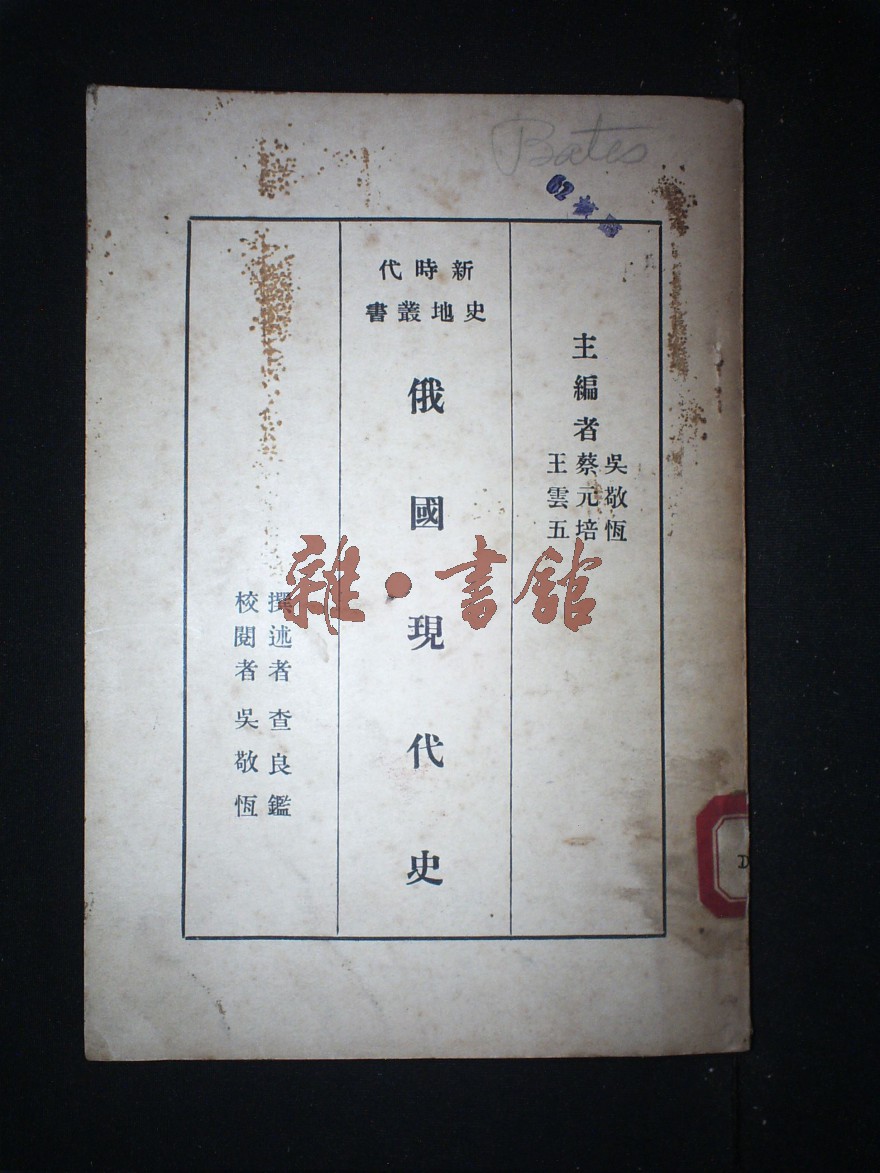 Bates
主編者
吳敬恆
蔡元培
王雲五
新時代
史地叢書
俄國現代史
撰述者 查良鑑
校閱者 吳敬恆
雜·書館